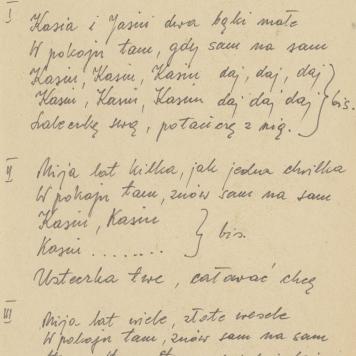 I Kasia i Jasiu dwa bąki małe
W pokoju tam, gdy sam na sam
Kasiu, Kasiu, Kasiu daj, daj, daj
Kasiu, Kasiu, Kasiu daj daj daj } bis.
Laleczkę swą, potańczę z nią.
II Mija lat kilka, jak jedna chwilka
W pokoju tam, znów sam na sam
Kasiu, Kasiu
Kasiu ........ } bis.
Usteczka twe, całować chcę
III Mija lat wiele, złote wesele
W pokoju tam, znów sam na sam